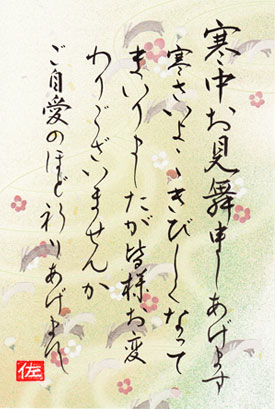 寒中お見舞申しあげます
寒さいよいよきびしくなって
まいりましたが皆様お変
わりございませんか
ご自愛のほど祈りあげます
佐